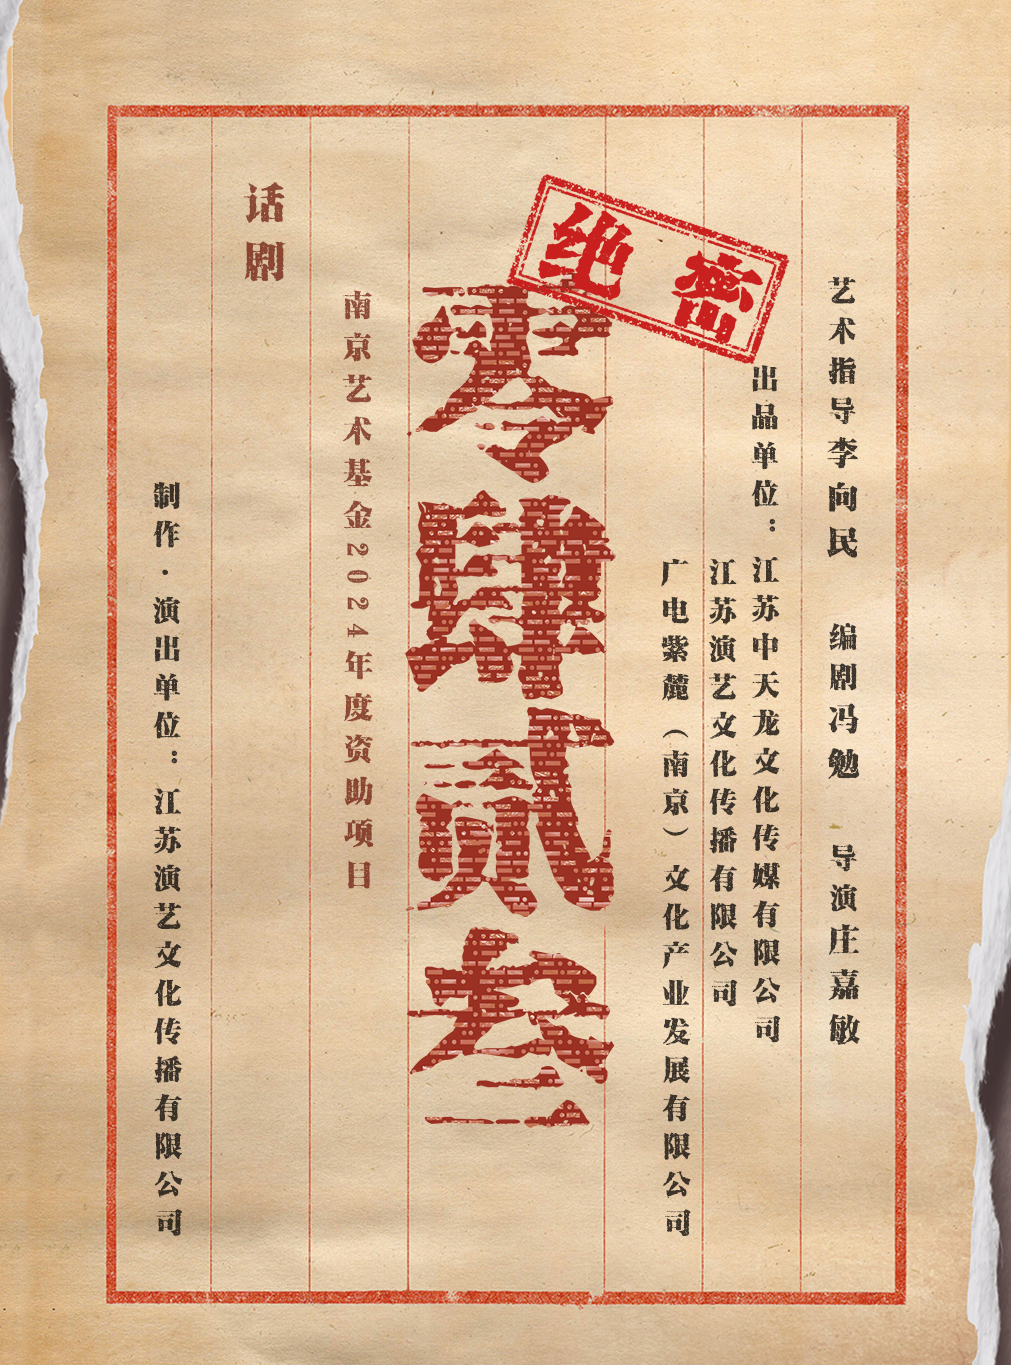 艺术指导李向民 编剧冯勉 导演庄嘉敏
出品单位：江苏中天龙文化传媒有限公司
江苏演艺文化传播有限公司
广电紫麓（南京）文化产业发展有限公司
绝密
零肆贰叁
南京艺术基金2024年度资助项目
话剧
制作·演出单位：江苏演艺文化传播有限公司